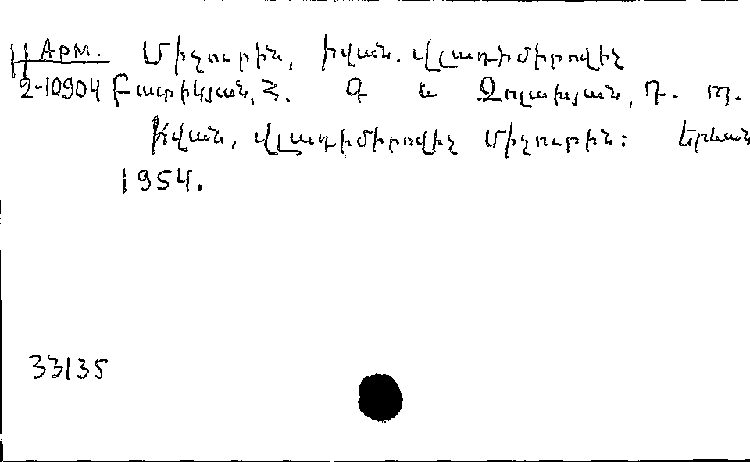 Арм. Միչուրին, Իվան. Վլադիմիրովիչ
2-10904 Բատիկյան, Հ. Գ և Չոլախյան, Դ. Պ.
Իվան, Վլադիմիրովիչ Միչուրին: Երևան
1954.
33135